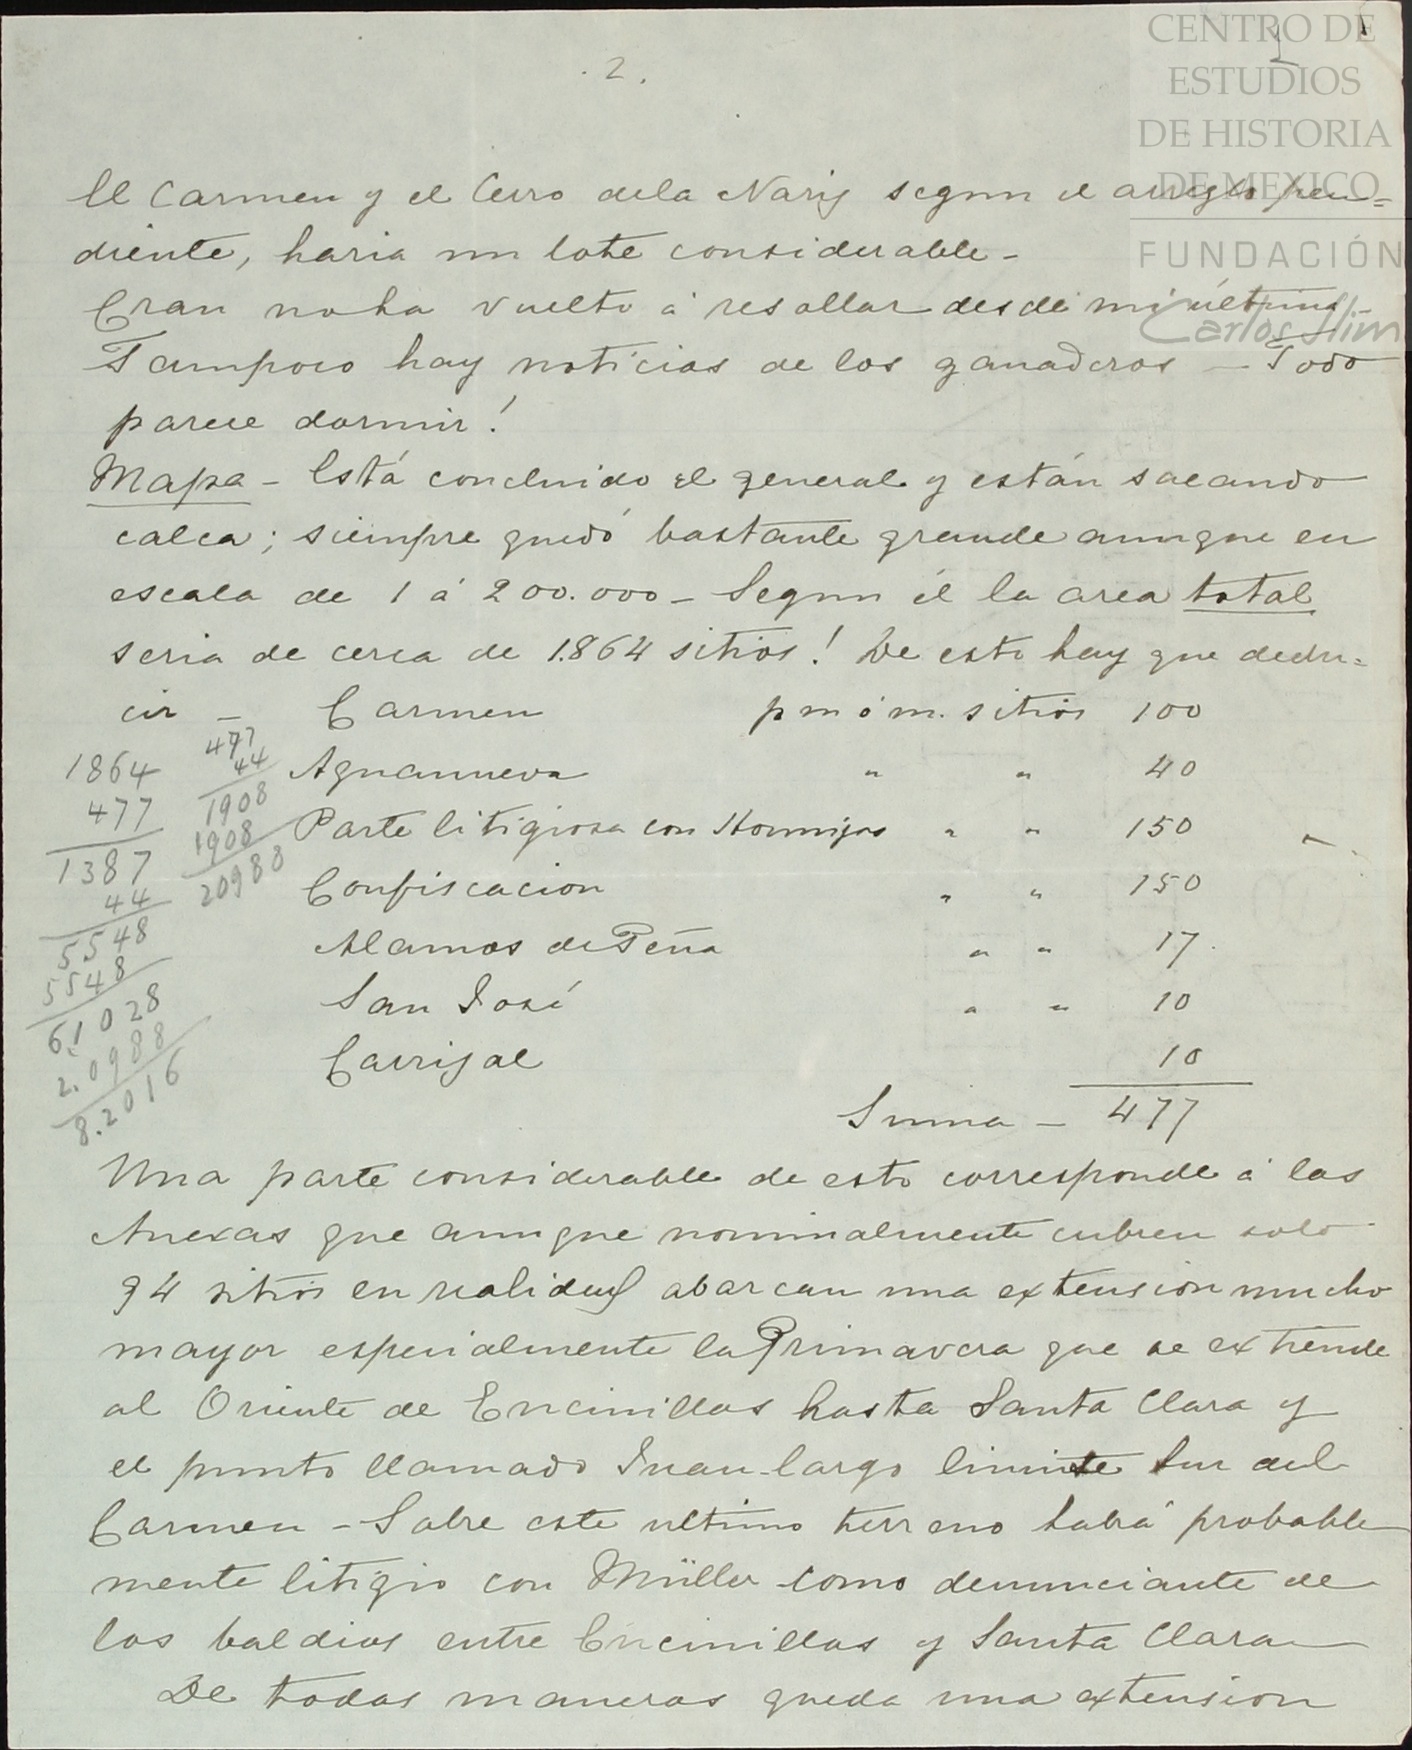 . 2 .
CENTRO DE
ESTUDIOS
DE HISTORIA
DE MEXICO
FUNDACIÓN
Carlos Slim
El Carmen y el Cerro de la Nariz segun el arreglo pen=
diente, haria un lote considerable -
Cran no ha vuelto á resollar desde mi última -
Tampoco hay noticias de los ganaderos - Todo
parece dormir!
Mapa - Está concluido el general y están sacando
calca; siempre quedó bastante grande aunque en
escala de 1 á 200.000 - Segun él la area total
seria de cerca de 1.864 sitios! De esto hay que dedu=
cir - Carmen p m ó m. sitios 100
Aguanueva " " 40
Parte litigiosa con Hormigas " " 150
Confiscacion " " 150
Alamos de Peña " " 17.
San José " " 10
Carrizal 10
Suma - 477
1864
477
1387
44
5548
5548
61028
2.0988
8.2016
477
44
1908
1908
20988
Una parte considerable de esto corresponde á las
Anexas que aunque nominalmente cubren solo
94 sitios en realidad abarcan una extension mucho
mayor especialmente la Primavera que se extiende
al Oriente de Encinillas hasta Santa Clara y
el punto llamado Juan-largo limite Sur del
Carmen - Sobre este ultimo terreno habrá probable
mente litigio con Müller como denunciante de
los baldios entre Encinillas y Santa Clara
De todas maneras queda una extension